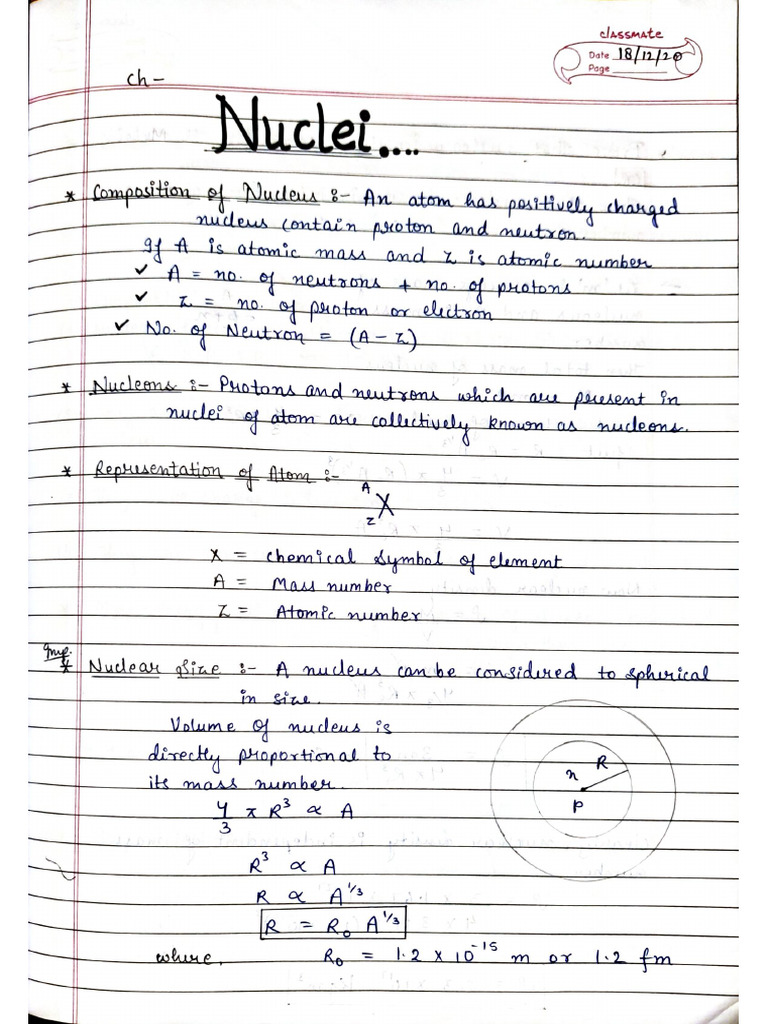 classmate
Date 18/12/20
Page
Ch-
Nuclei....
* Composition of Nucleus :- An atom has positively charged
nucleus contain proton and neutron.
If A is atomic mass and Z is atomic number
✓ A = no. of neutrons + no. of protons
✓ Z = no. of proton or electron
✓ No. of Neutron = (A-Z)
* Nucleons :- Protons and neutrons which are present in
nuclei of atom are collectively known as nucleons.
* Representation of Atom :-
A
X
Z
X = chemical symbol of element
A = Mass number
Z = Atomic number
Imp.
* Nuclear Size :- A nucleus can be considered to spherical
in size.
Volume of nucleus is
directly proportional to
its mass number.
n R
P
4/3 π R³ ∝ A
R³ ∝ A
R ∝ A^1/3
R = R₀ A^1/3
where, R₀ = 1.2 × 10⁻¹⁵ m or 1.2 fm